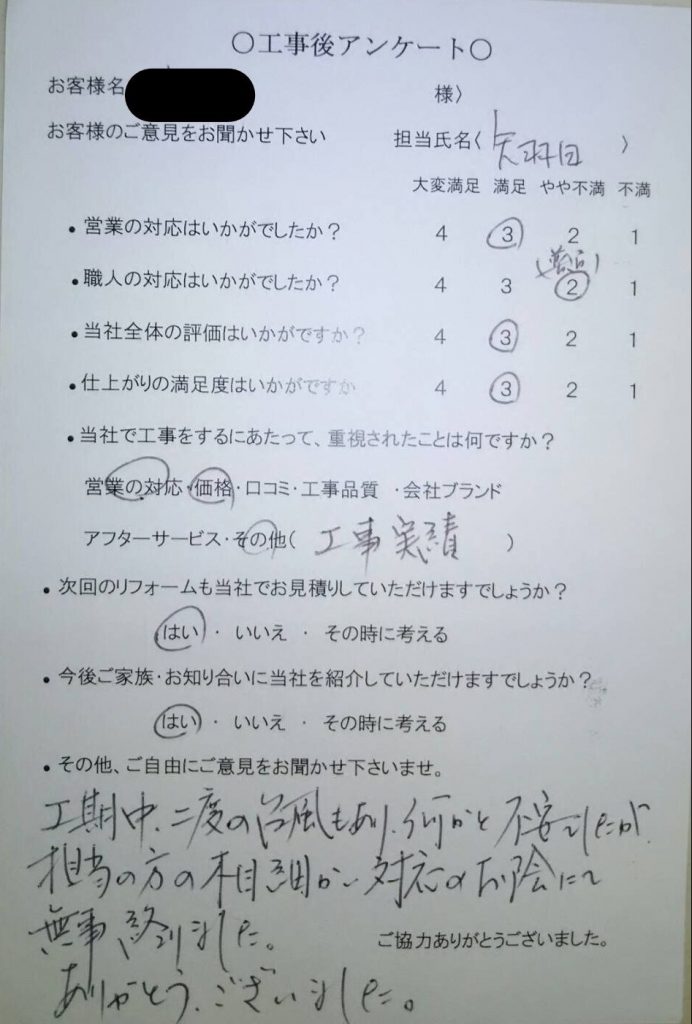 〇工事後アンケート〇
お客様名 様〉
お客様のご意見をお聞かせ下さい 担当氏名〈 〉
大変満足 満足 やや不満 不満
・営業の対応はいかがでしたか？ 4 3 2 1
・職人の対応はいかがでしたか？ 4 3 2 1
・当社全体の評価はいかがですか？ 4 3 2 1
・仕上がりの満足度はいかがですか 4 3 2 1
・当社で工事をするにあたって、重視されたことは何ですか？
営業の対応・価格・口コミ・工事品質 ・会社ブランド
アフターサービス・その他（ 工事実績 ）
・次回のリフォームも当社でお見積りしていただけますでしょうか？
はい ・ いいえ ・ その時に考える
・今後ご家族・お知り合いに当社を紹介していただけますでしょうか？
はい ・ いいえ ・ その時に考える
・その他、ご自由にご意見をお聞かせ下さいませ。
工期中、二度の台風もあり、何かと不安でしたが
担当の方の木目細かい対応のお陰にて
無事終りました。 ご協力ありがとうございました。
ありがとう、ございました。